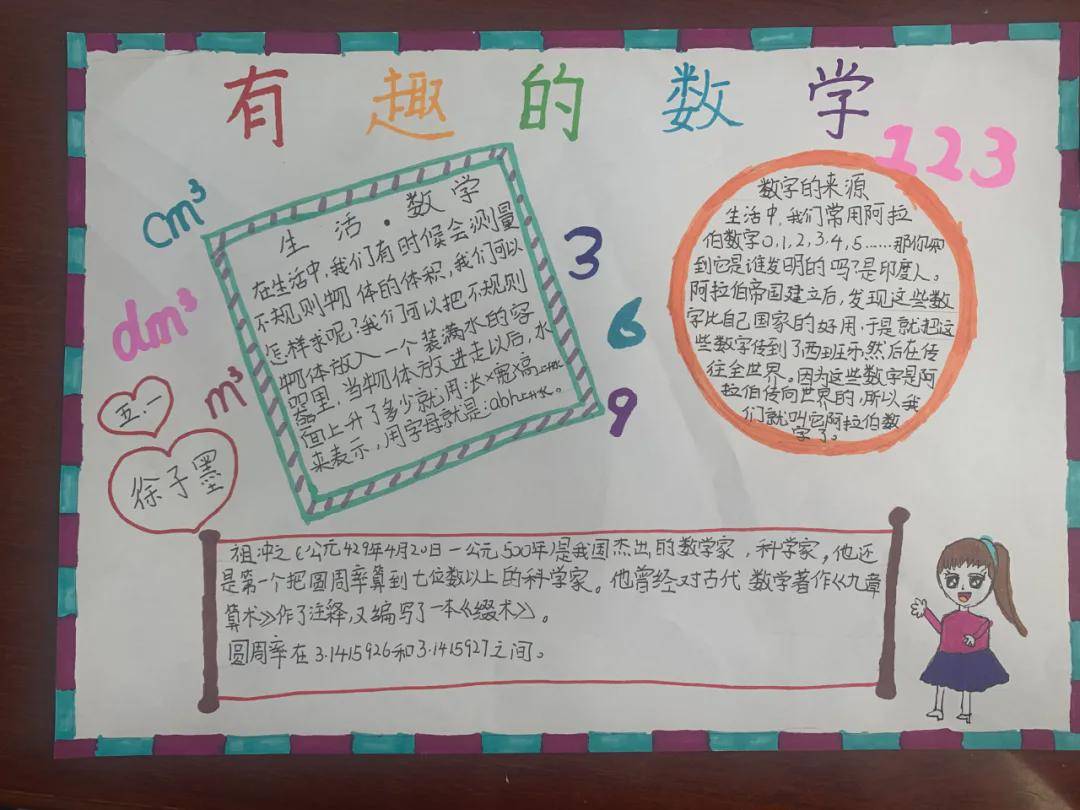 有趣的数学
123
cm³
dm³
m³
五.一
徐子墨
生活·数学
在生活中,我们有时候会测量
不规则物体的体积,我们可以
怎样求呢?我们可以把不规则
物体放入一个装满水的容
器里,当物体放进走以后,水
面上升了多少就用:长×宽×高
来表示,用字母就是:abh
3
6
9
数字的来源
生活中,我们常用阿拉
伯数字0,1,2,3,4,5……那你
到它是谁发明的吗?是印度人。
阿拉伯帝国建立后,发现这些数
字比自己国家的好用,于是就把这
些数字传到了西班牙,然后在传
往全世界。因为这些数字是阿
拉伯传向世界的,所以我
们就叫它阿拉伯数
字了。
祖冲之(公元429年4月20日—公元500年)是我国杰出的数学家,科学家,他还
是第一个把圆周率算到七位数以上的科学家。他曾经对古代数学著作《九章
算术》作了注释,又编写了一本《缀术》。
圆周率在3.1415926和3.1415927之间。